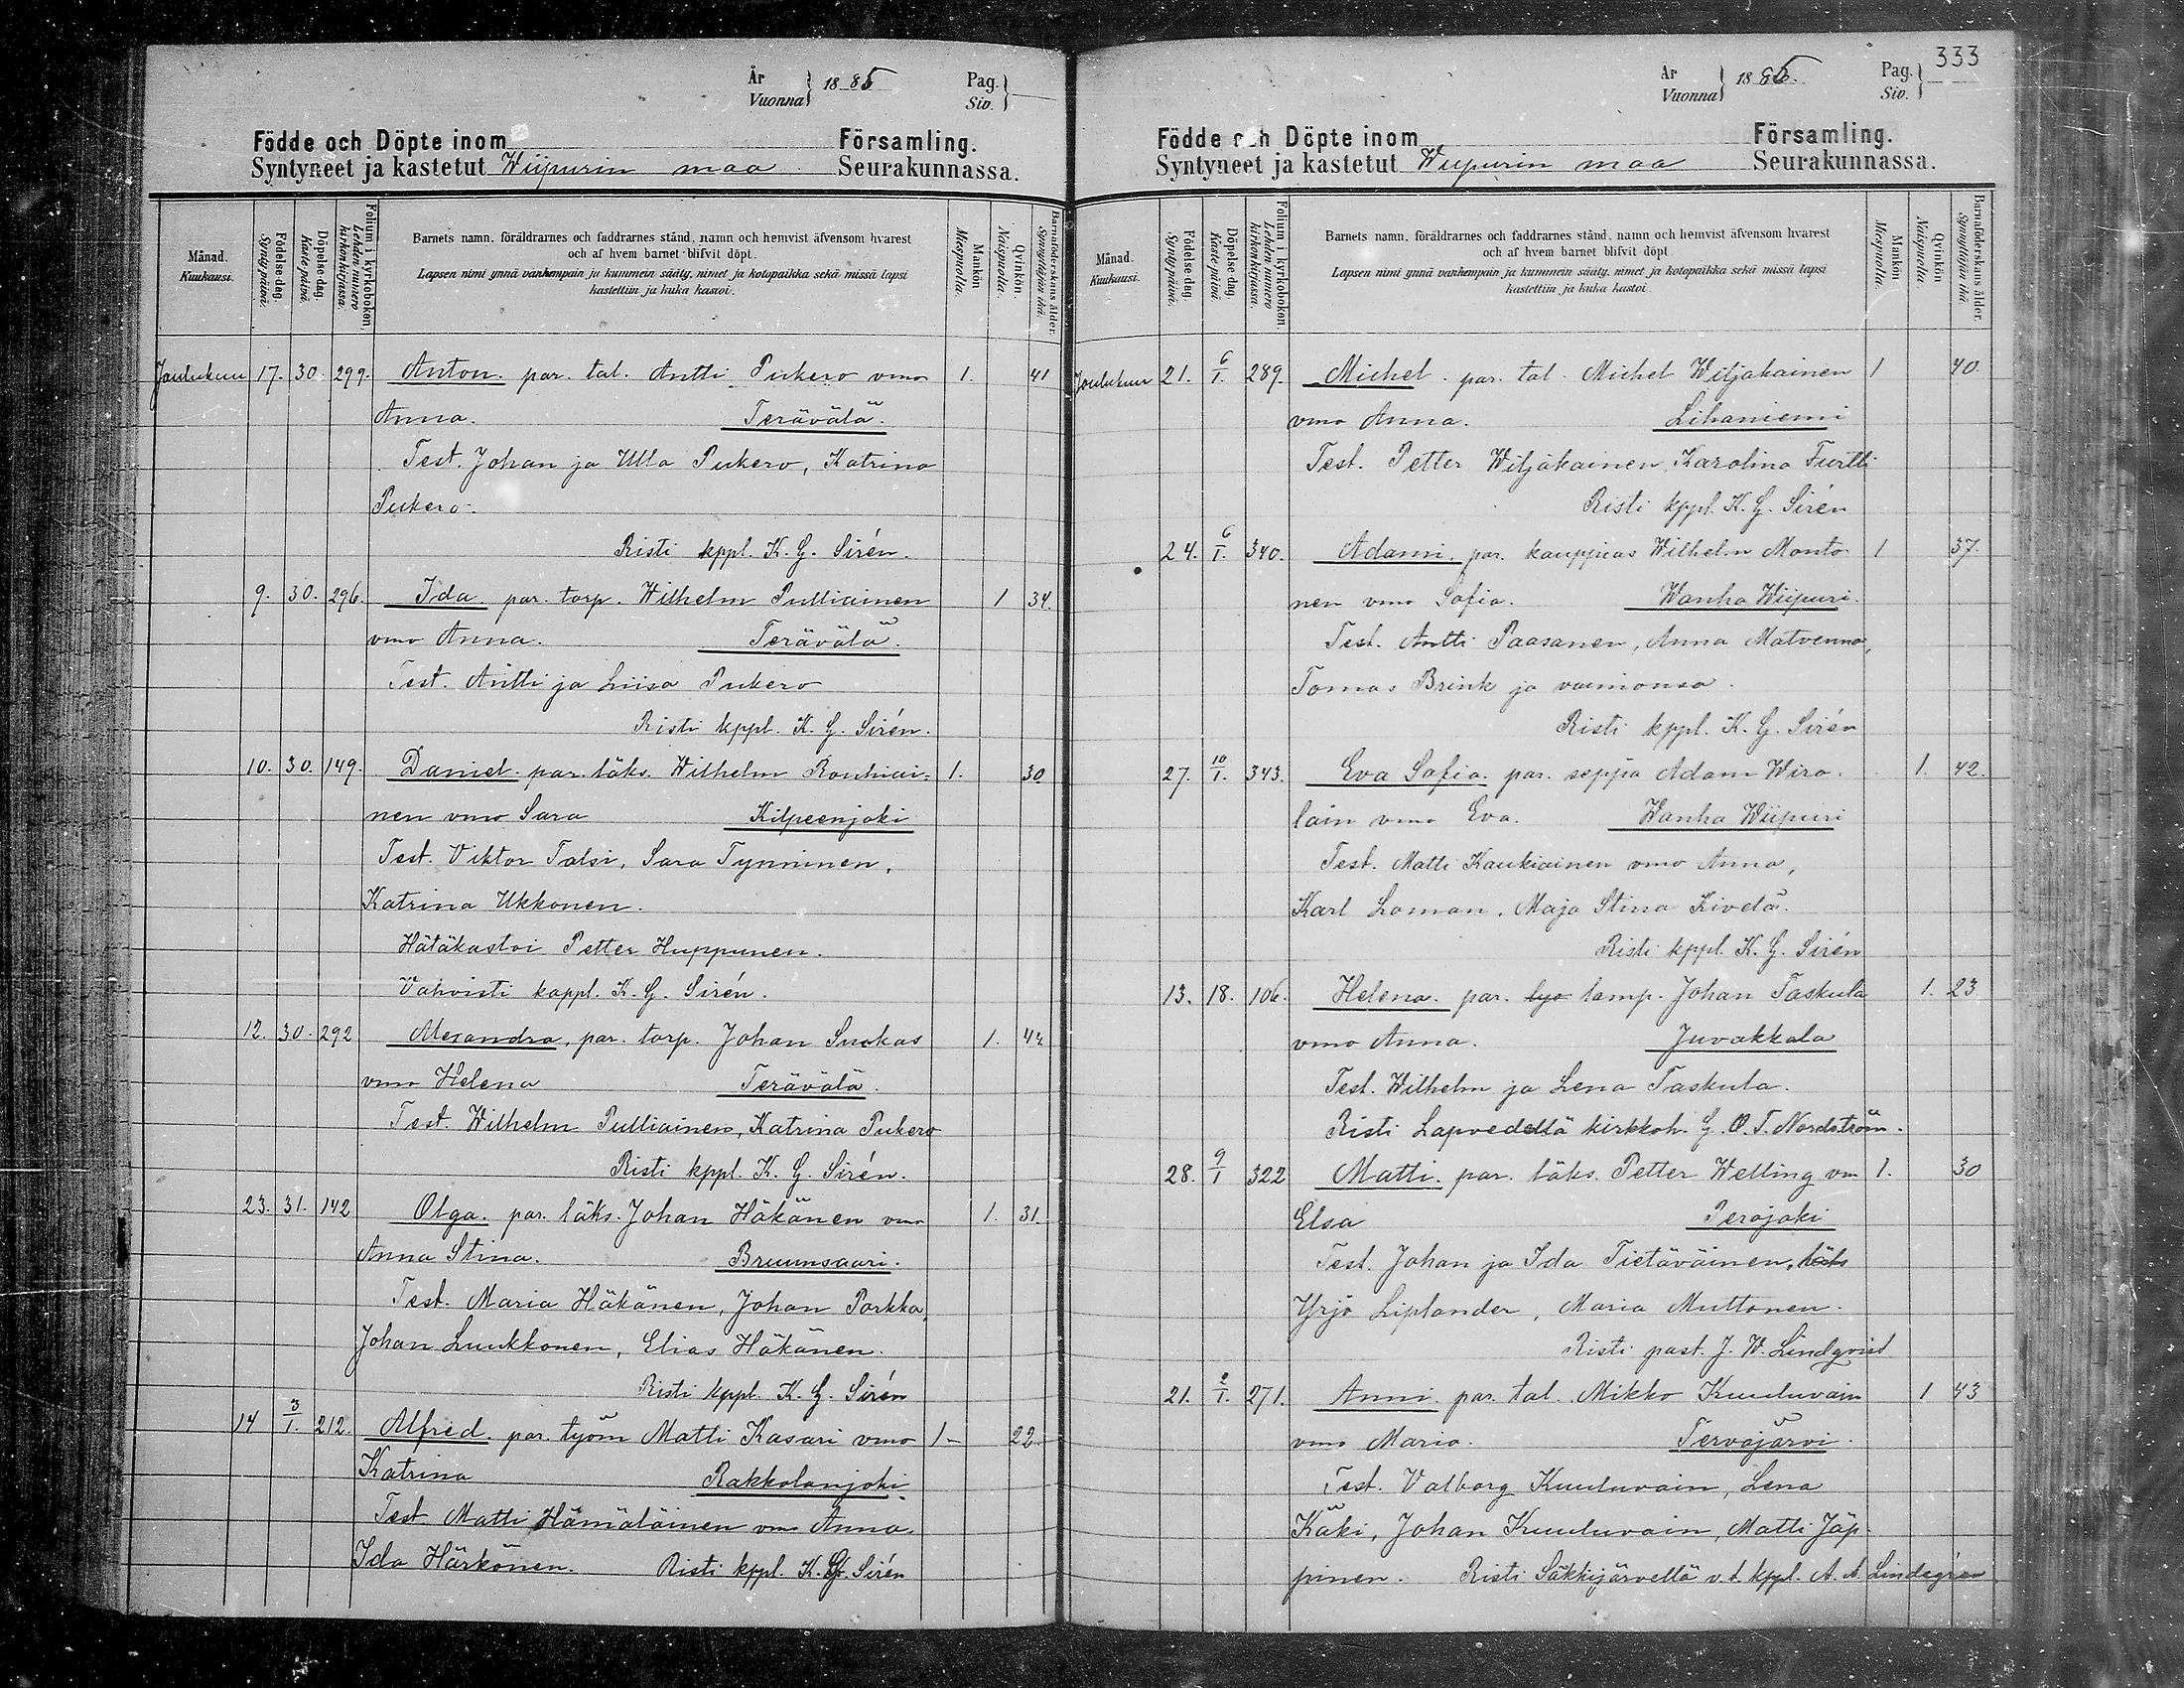 År
Vuonna } 1885
Pag.
Siv. } —
Födde och Döpte inom Församling.
Syntyneet ja kastetut Wiipurin maa Seurakunnassa.
Månad.
Kuukausi.
Födelse-dag.
Syntypäivä.
Döpelse-dag.
Kastepäivä.
Folium i kyrkoboken.
Lehden numero
kirkonkirjassa.
Barnets namn, föräldrarnes och faddrarnes stånd, namn och hemvist äfvensom hvarest
och af hvem barnet blifvit döpt.
Lapsen nimi ynnä vanhempain ja kummein sääty, nimet ja kotopaikka sekä missä lapsi
kastettiin ja kuka kastoi.
Mankön
Miespuolia.
Qvinkön.
Naispuolia.
Barnaföderskans ålder.
Synnyttäjän ikä.
Joulukuu 17. 30. 299. Anton. par. tal. Antti Pukero vmo 1. 41
Anna. Terävälä.
Test. Johan ja Ulla Pukero, Katrina
Pukero.
Risti kppl. K. G. Sirén.
9. 30. 296. Ida. par. torp. Wilhelm Pulliainen 1 34.
vmo Anna. Terävälä.
Test. Antti ja Liisa Pukero
Risti kppl. K. G. Sirén.
10. 30. 149. Daniel. par. läks. Wilhelm Ronhiai- 1. 30
nen vmo Sara Kilpeenjoki
Test. Viktor Talsi, Sara Tynninen,
Katrina Ukkonen.
Hätäkastoi Petter Huppunen.
Vahvisti kappl. K. G. Sirén.
12. 30. 292 Alexandra, par. torp. Johan Suokas 1. 44
vmo Helena Terävälä.
Test. Wilhelm Pulliainen, Katrina Pukero
Risti kppl. K. G. Sirén.
23. 31. 142 Olga. par. läks. Johan Häkänen vmo 1. 31.
Anna Stina. Bruunsaari.
Test. Maria Häkänen, Johan Porkka,
Johan Luukkonen, Elias Häkänen.
Risti kppl. K. G. Sirén
14 3/1. 212. Alfred. par. työm Matti Kasari vmo 1- 22.
Katrina Rakkolanjoki.
Test. Matti Hämäläinen vmo Anna
Ida Härkönen. Risti kppl. K. G. Sirén
333
År
Vuonna } 1885.
Pag.
Siv. } —
Födde och Döpte inom Församling.
Syntyneet ja kastetut Wiipurin maa Seurakunnassa.
Månad.
Kuukausi.
Födelse-dag.
Syntypäivä.
Döpelse-dag.
Kastepäivä.
Folium i kyrkoboken.
Lehden numero
kirkonkirjassa.
Barnets namn, föräldrarnes och faddrarnes stånd, namn och hemvist äfvensom hvarest
och af hvem barnet blifvit döpt
Lapsen nimi ynnä vanhempain ja kummein sääty, nimet ja kotopaikka sekä missä lapsi
kastettiin ja kuka kastoi
Mankön
Miespuolia.
Qvinkön
Naispuolia.
Barnaföderskans ålder.
Synnyttäjän ikä.
Joulukuu 21. 6/1. 289. Michel. par. tal. Michel Wiljakainen 1 40
vmo Anna. Lihaniemi
Test. Petter Wiljakainen, Karolina Furtti
Risti kppl. K. G. Sirén
24. 6/1. 340. Adami. par. kauppias Wilhelm Monto- 1 37.
nen vmo Sofia. Wanha Wiipuri.
Test. Antti Paasanen, Anna Matvenna,
Tomas Brink ja vaimonsa.
Risti kppl. K. G. Sirén
27. 10/1. 343. Eva Sofia. par. seppä Adam Wiro- 1. 42.
lain vmo Eva. Wanha Wiipuri
Test. Matti Kaukiainen vmo Anna,
Karl Loman, Maja Stina Kivelä.
Risti kppl. K. G. Sirén
13. 18. 106. Helena. par. lamp. Johan Taskula 1. 23
vmo Anna. Juvakkala
Test. Wilhelm ja Lena Taskula.
Risti Lapvedellä kirkkoh. G. O. T. Nordström.
28. 9/1 322 Matti. par. läks. Petter Welling vm 1. 30
Elsa Perojoki
Test. Johan ja Ida Tietäväinen, läks
Yrjö Liplander, Maria Muttonen.
Risti past. J. W. Lindqvist
21. 2/1. 271. Anni. par. tal. Mikko Kuuluvain 1 43
vmo Maria. Tervajärvi.
Test. Valborg Kuuluvain, Lena
Käki, Johan Kuuluvain, Matti Jäp-
pinen. Risti Säkkijärvellä v. t. kppl. A. A. Lindegrén